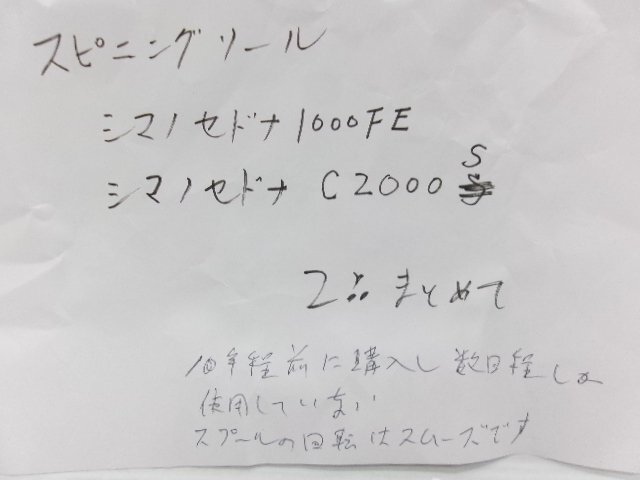 スピニングリール
シマノセドナ1000FE
シマノセドナ C2000 S
2点まとめて
10年程前に購入し数日程しか
使用していない
スプールの回転はスムーズです